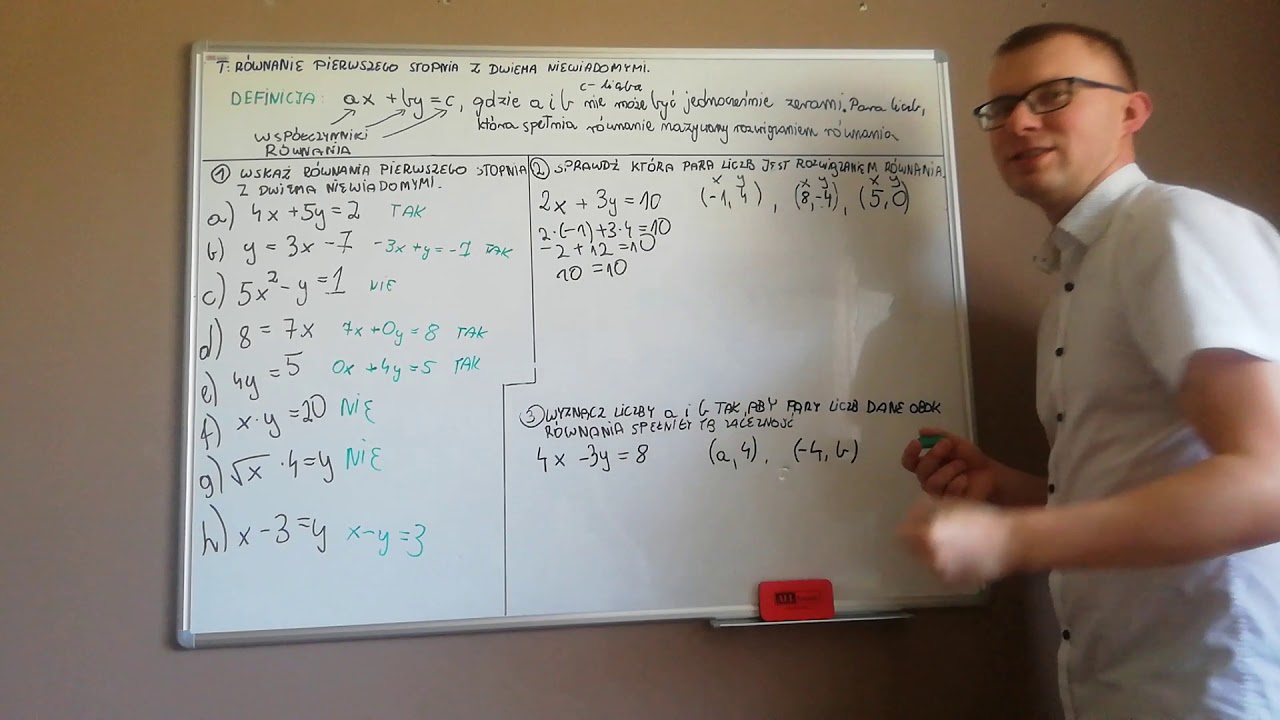 T: RÓWNANIE PIERWSZEGO STOPNIA Z DWIEMA NIEWIADOMYMI.
c - liczba
DEFINICJA: ax + by = c, gdzie a i b nie może być jednocześnie zerami. Para liczb,
która spełnia równanie nazywamy rozwiązaniem równania
WSPÓŁCZYNNIKI
RÓWNANIA
① WSKAŻ RÓWNANIA PIERWSZEGO STOPNIA
Z DWIEMA NIEWIADOMYMI.
a) 4x + 5y = 2 TAK
b) y = 3x - 7 -3x + y = -7 TAK
c) 5x² - y = 1 NIE
d) 8 = 7x 7x + 0y = 8 TAK
e) 4y = 5 0x + 4y = 5 TAK
f) x · y = 20 NIE
g) √x · 4 = y NIE
h) x - 3 = y x - y = 3
② SPRAWDŹ KTÓRA PARA LICZB JEST ROZWIĄZANIEM RÓWNANIA.
x y x y x y
2x + 3y = 10 (-1, 4), (8, -4), (5, 0)
2·(-1) + 3·4 = 10
-2 + 12 = 10
10 = 10
③ WYZNACZ LICZBY a i b TAK, ABY PARY LICZB DANE OBOK
RÓWNANIA SPEŁNIŁY TĄ ZALEŻNOŚĆ
4x - 3y = 8 (a, 4), (-4, b)